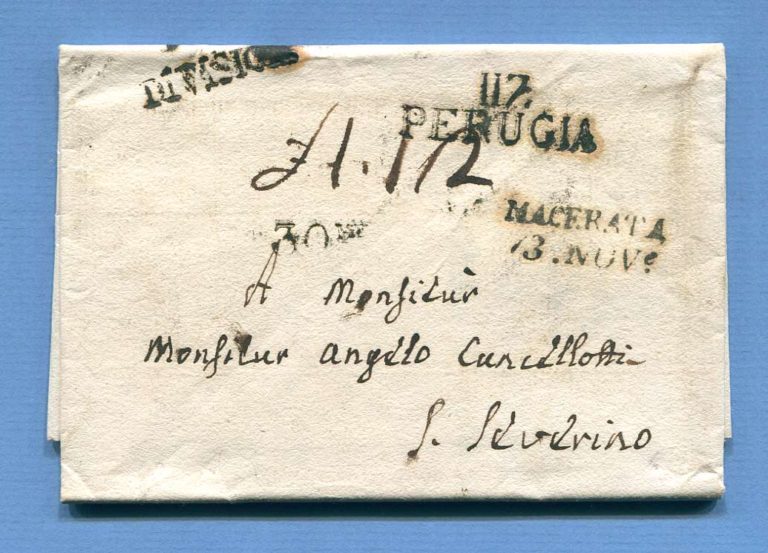 DIVISION
117.
PERUGIA
£1.1/2
MACERATA
13.NOVe
30
A Monsieur
Monsieur Angelo Cancellotti
S. Severino